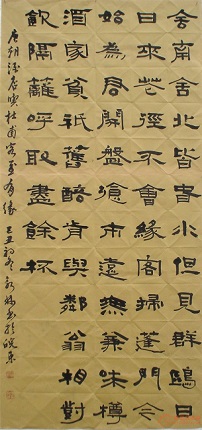 舍南舍北皆春水但見群鷗日
日來花徑不曾緣客掃蓬門今
始為君開盤飧市遠無兼味樽
酒家貧祇舊醅肯與鄰翁相對
飲隔籬呼取盡餘杯
唐朝詩 杜甫客至 己丑初冬 書於皖東